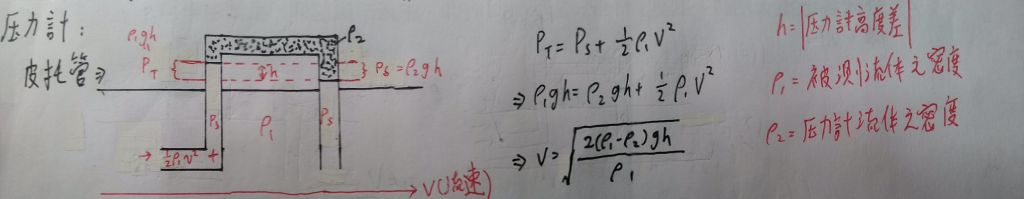 压力計:
皮托管⇒
ρ₁gh
P_T
h
ρ₂
P_S = ρ₂gh
P_S
ρ₁
P_S
→ ½ρ₁v² +
V(流速)
P_T = P_S + ½ρ₁V²
⇒ ρ₁gh = ρ₂gh + ½ρ₁V²
⇒ V = √(2(ρ₁-ρ₂)gh / ρ₁)
h = |压力計高度差|
ρ₁ = 被测流体之密度
ρ₂ = 压力計流体之密度